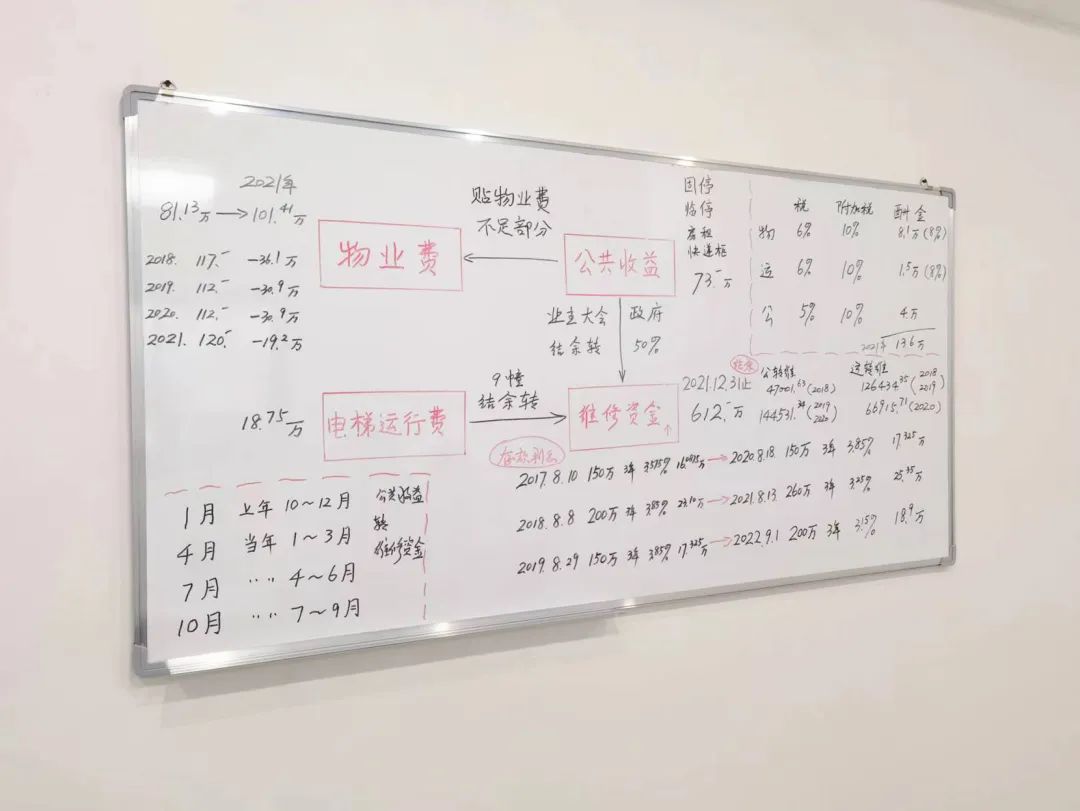 2021年
81.13万→101.41万
2018. 117.- -36.1万
2019. 112.- -30.9万
2020. 112.- -30.9万
2021. 120.- -19.2万
物业费
贴物业费
不足部分
公共收益
固停
临停
房租
快递柜
73.-万
税 附加税 酬金
物 6% 10% 8.1万(8%)
运 6% 10% 1.5万(8%)
公 5% 10% 4万
2021年 13.6万
业主大会 政府
结余转 50%
18.75万
电梯运行费
9幢
结余转
维修资金↑
2021.12.31止
612.-万
结余
公转维 运转维
47001.63(2018) 126434.35(2018 2019)
144531.34(2019 2020) 66915.71(2020)
存款利息
2017.8.10 150万 3年 3.575% →2020.8.18. 150万 3年 3.85% 17.325万
2018.8.8 200万 3年 3.85% 23.10万→2021.8.13. 260万 3年 3.25% 25.35万
2019.8.29 150万 3年 3.85% 17.325万→2022.9.1 200万 3年 3.15% 18.9万
1月 上年 10~12月
4月 当年 1~3月
7月 〃〃 4~6月
10月 〃〃 7~9月
公共收益
转
维修资金